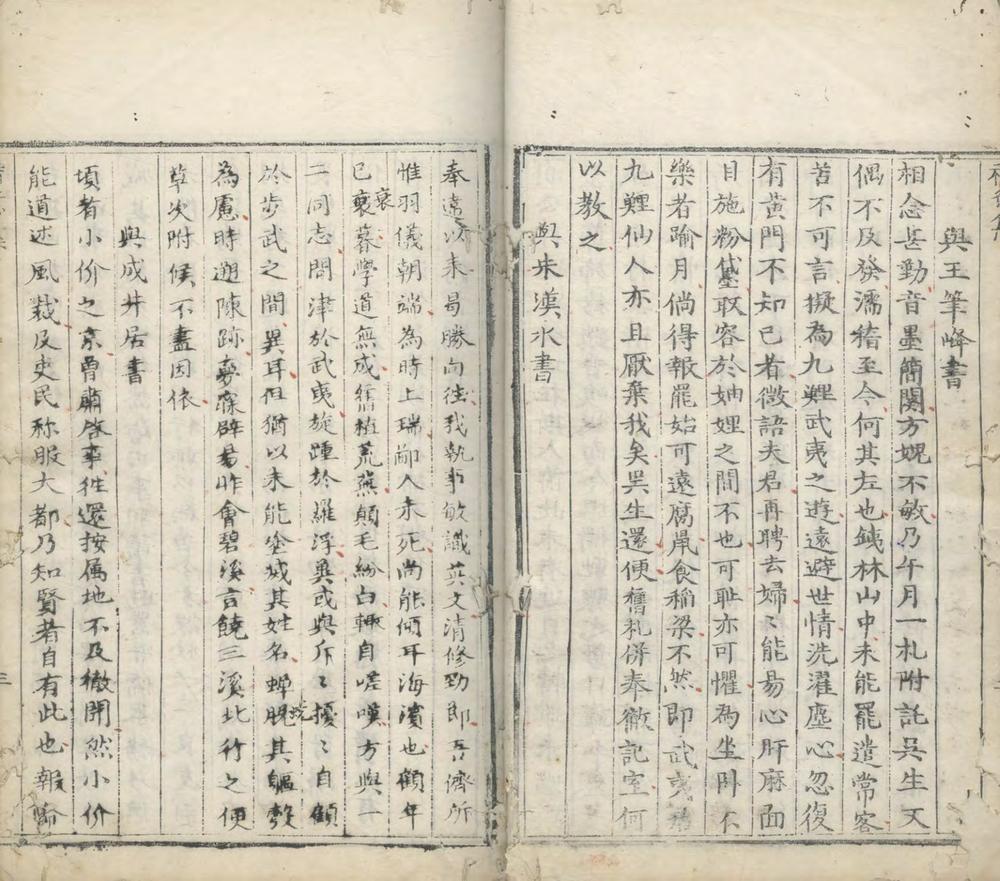 與王筆峰書
相念甚勤音墨簡闊方媿不敏乃午月一札附託吳生又
偶不及發濡稽至今何其左也鋮林山中未能罷遣常客
苦不可言擬為九鯉武夷之遊遠避世情洗濯塵心忽復
有黃門不知已者徵語夫君再聘去婦能易心肝麻面
目施粉黛取容於妯娌之間不也可耻亦可懼為坐臥不
樂者踰月倘得報罷始可遠腐鼠食稲梁不然即武夷
九鯉仙人亦且厭棄我矣吳生還便舊札併奉徹記室何
以教之
與朱漢水書
奉違以來曷勝向往我執事敏識英文清修勁節吾儕所
惟羽儀朝端為時上瑞鄙人未死尚能傾耳海濱也顧年
已衰暮學道無成舊植荒蕪顛毛紛白輙自嗟嘆方與一
二同志問津於武夷旋踵於羅浮異或與斥〻擾〻自顧
於步武之間異耳但猶以未能坌滅其姓名蟬脫其軀殼
為慮時遡陳跡夢寐辟易昨會碧溪言饒三溪北行之便
草次附候不盡因依
與成井居書
頃者小价之京曾肅啓事徃還按属地不及徹開然小价
能道述風裁及吏民称服大都乃知賢者自有此也報喻